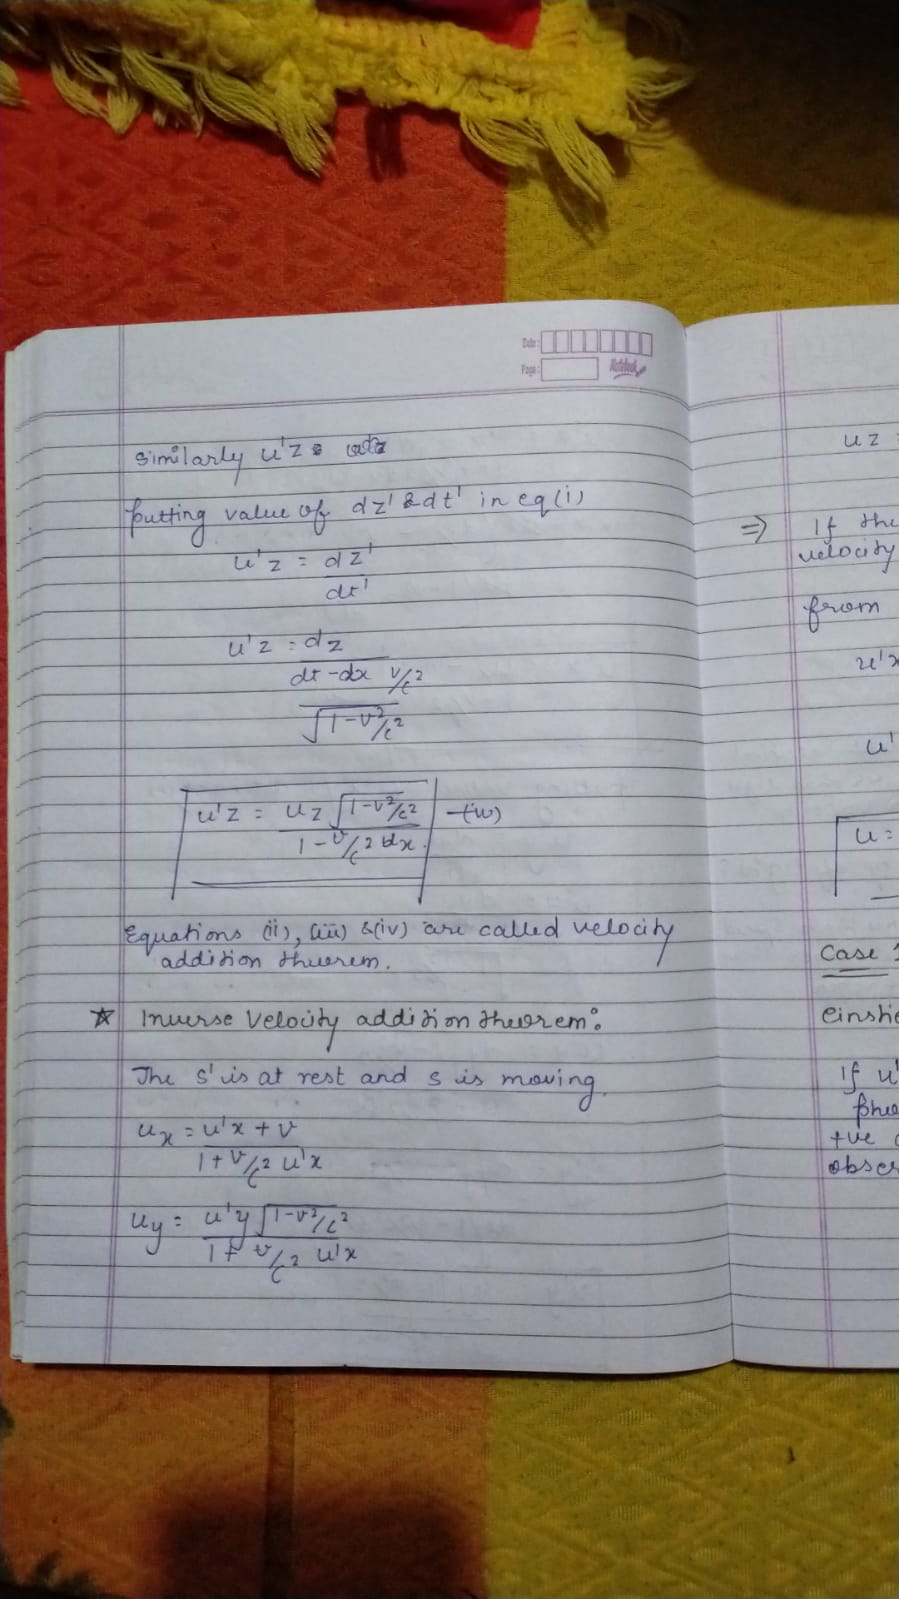 Date:
Page:
Notebook
Similarly u'z =
putting value of dz' & dt' in eq(i)
u'z = dz'
dt'
u'z = dz
dt - dx v/c²
√1-v²/c²
u'z = uz √1-v²/c² -(iv)
1 - v/c² ux
Equations (ii), (iii) & (iv) are called velocity
addition theorem.
☆ Inverse Velocity addition theorem:
The S' is at rest and S is moving.
ux = u'x + v
1 + v/c² u'x
uy = u'y √1-v²/c²
1 + v/c² u'x
uz =
⇒ If the
velocity
from
u'x
u'
u =
Case 1
einstie
If u'
pho
+ve
obser